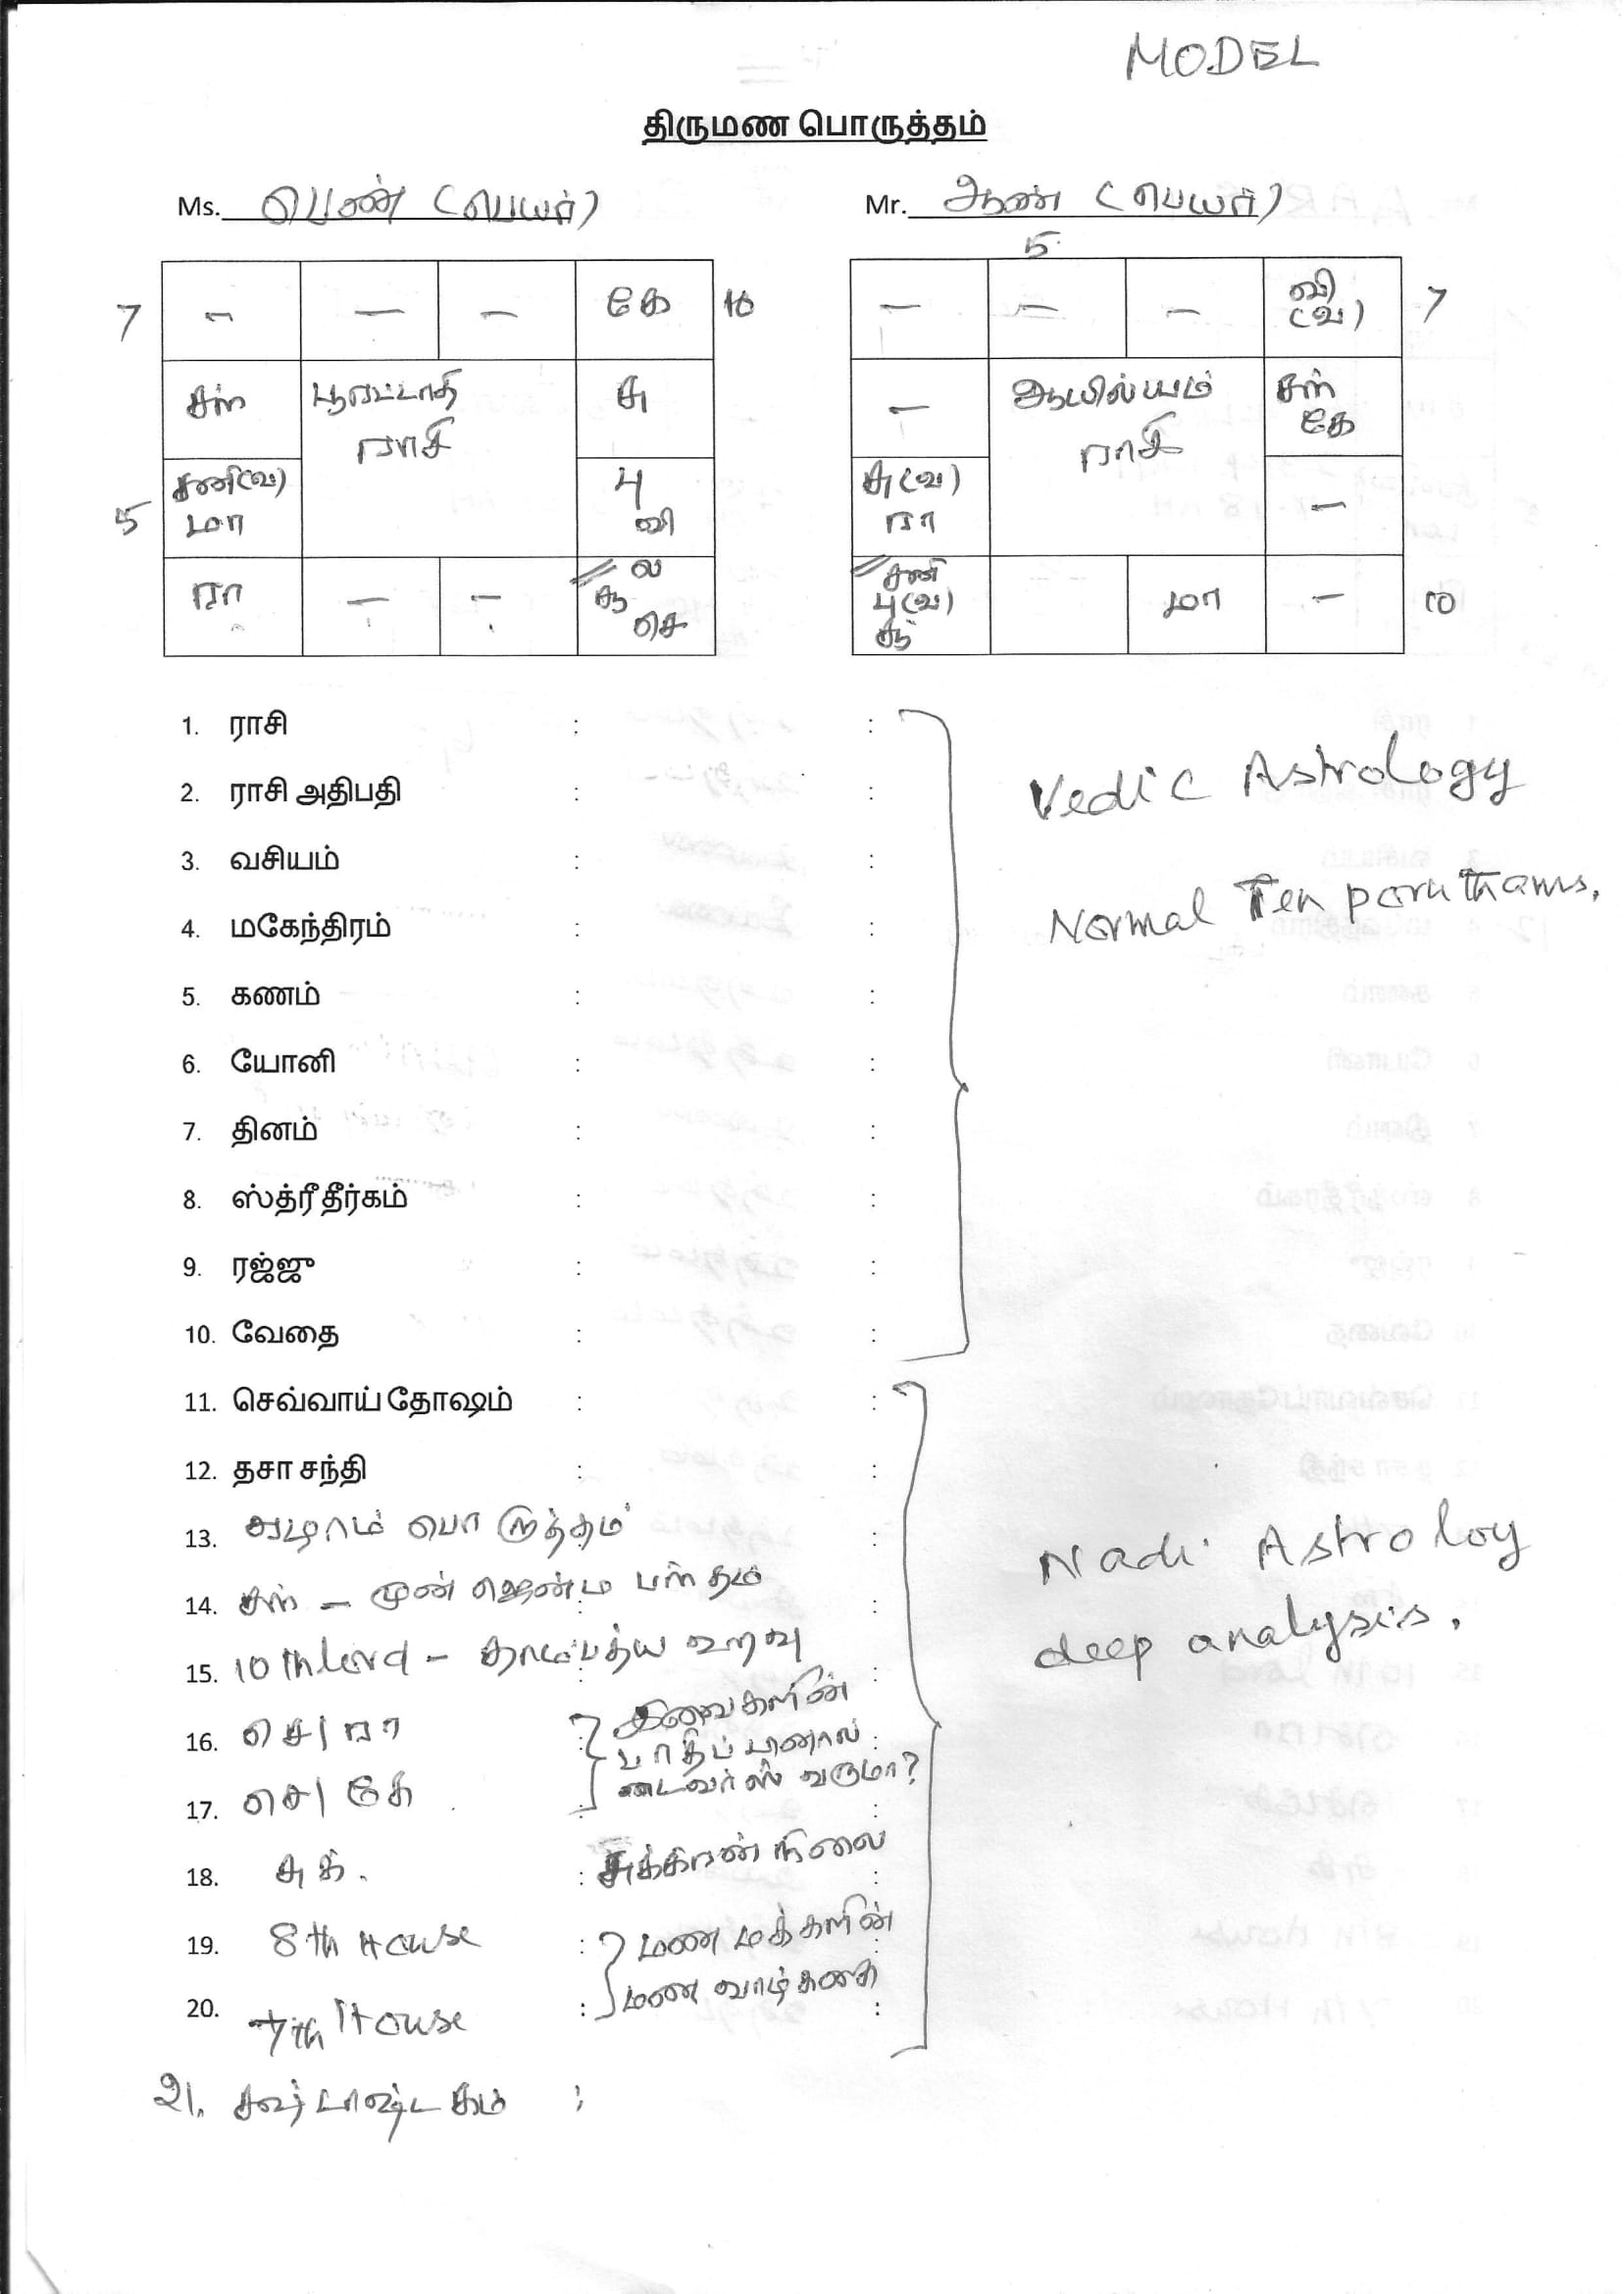 MODEL
திருமண பொருத்தம்
Ms. பெண் (பெயர்)
Mr. ஆண் (பெயர்)
5
7 – – – கே 10
– – – வி (வ) 7
சந் பூரட்டாதி ராசி சு
– ஆயில்யம் ராசி சந் கே
5 சனி(வ) மா பு வி
சு(வ) ரா –
ரா – – ல சூ செ
சனி பு(வ) சூ மா – 10
1. ராசி : :
2. ராசி அதிபதி : :
Vedic Astrology
3. வசியம் : :
4. மகேந்திரம் : :
Normal Ten poruthams.
5. கணம் : :
6. யோனி : :
7. தினம் : :
8. ஸ்த்ரீ தீர்கம் : :
9. ரஜ்ஜு : :
10. வேதை : :
11. செவ்வாய் தோஷம் : :
12. தசா சந்தி : :
13. பொருத்தம் :
Nadi Astroloy
14. சந் – முன் ஜென்ம பந்தம் :
deep analysis.
15. 10th lord – தாம்பத்ய உறவு :
16. செ/ரா : இவைகளின்
பாதிப்பினால்
17. செ/கே டைவர்ஸ் வருமா?
18. சுக். : சுக்கிரன் நிலை :
19. 8th House : மண மக்களின்
20. 7th House : மண வாழ்க்கை :
21. :